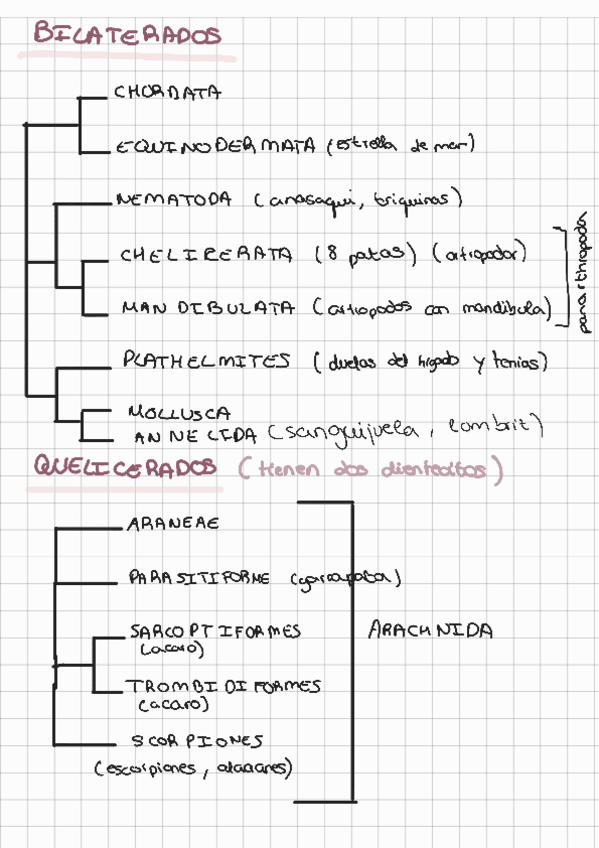 BILATERADOS
CHORDATA
EQUINODERMATA (estrella de mar)
NEMATODA (anasaqui, triquinas)
CHELICERATA (8 patas) (artropodor)
MANDIBULATA (artropodos con mandibula)
panarthropoda
PLATHELMITES (duelas del higado y tenias)
MOLLUSCA
ANNELIDA (sanguijuela, lombriz)
QUELICERADOS (tienen dos dientecitos)
ARANEAE
PARASITIFORME (garrapata)
SARCOPTIFORMES
(acaro)
ARACHNIDA
TROMBIDIFORMES
(acaro)
SCORPIONES
(escorpiones, alacranes)